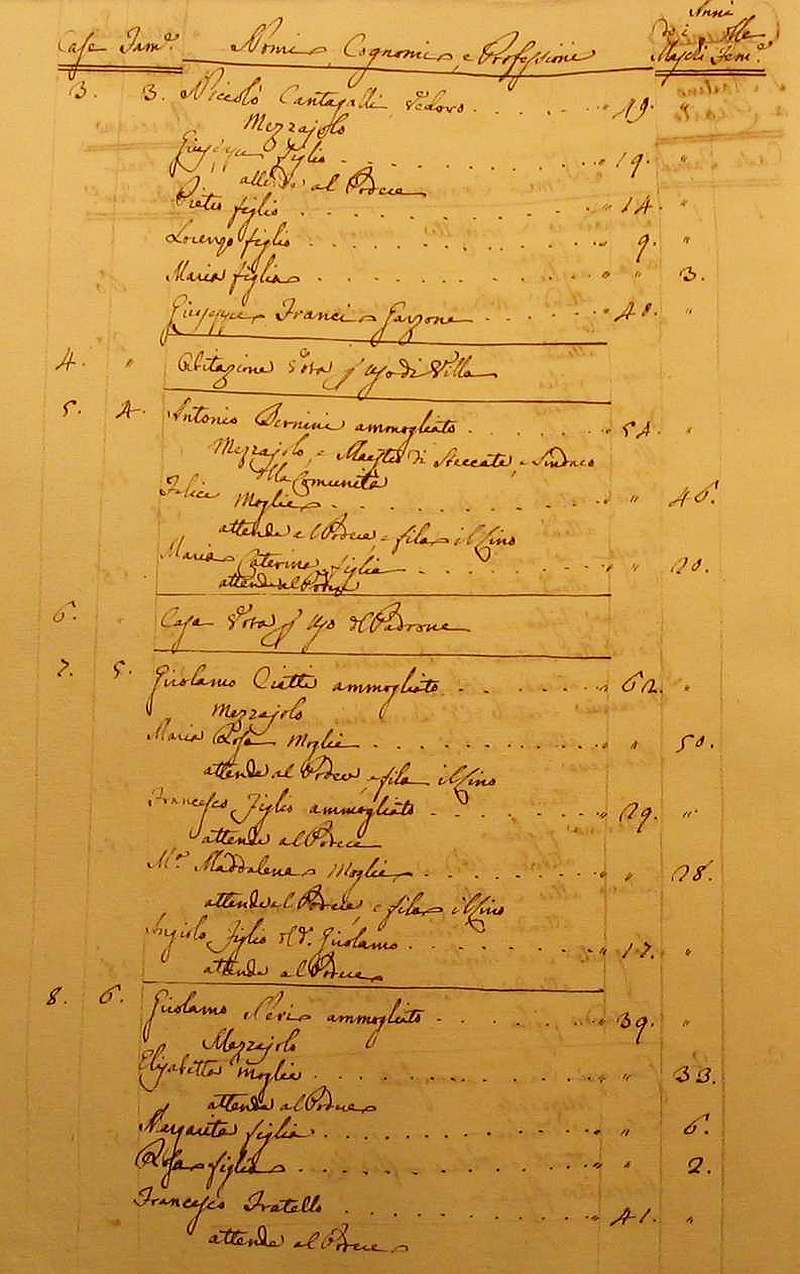 Anni
Case Fam.e Nomi, Cognomi, e Professione de i Maschi delle Fem.e
3. 3. Niccolò Cantagalli Vedovo . . . . . . " 49. "
Mezzajolo
Giuseppe figlio . . . . . . . . . . . " 19. "
attende al Podere
Pietro figlio . . . . . . . . . . . . " 14. "
Lorenzo figlio . . . . . . . . . . . . " 9. "
Maria figlia . . . . . . . . . . . . " " 3.
Giuseppe Franci Garzone . . . . . . " 48. "
4. " Abitazione Vota p uso di Villa
5. 4. Antonio Bernini ammogliato . . . . . . . " 54. "
Mezzajolo, e Maestro di Steccate, e Sindaco
della Comunità
Felice Moglie . . . . . . . . . . . . " " 46.
attende al Podere, e fila il Lino
Maria Caterina figlia . . . . . . . . . " " 20.
attende al Podere
6. Casa Vota p uso del Padrone
7. 5. Girolamo Ciatti ammogliato . . . . . . . " 62. "
Mezzajolo
Maria Rosa Moglie . . . . . . . . . . . " " 50.
attende al Podere, e fila il Lino
Francesco Figlio ammogliato . . . . . . . . " 29. "
attende al Podere
M.a Maddalena Moglie . . . . . . . . " " 28.
attende al Podere, e fila il Lino
Angiolo Figlio del d.o Girolamo . . . . . . . . " 17. "
attende al Podere
8. 6. Girolamo Neri ammogliato . . . . . . . " 39. "
Mezzajolo
Elisabetta Moglie . . . . . . . . . . . . " " 33.
attende al Podere
Margarita figlia . . . . . . . . . . . . " " 6.
Rosa figlia . . . . . . . . . . . . . " " 2.
Francesco Fratello . . . . . . . . . . . " 41. "
attende al Podere